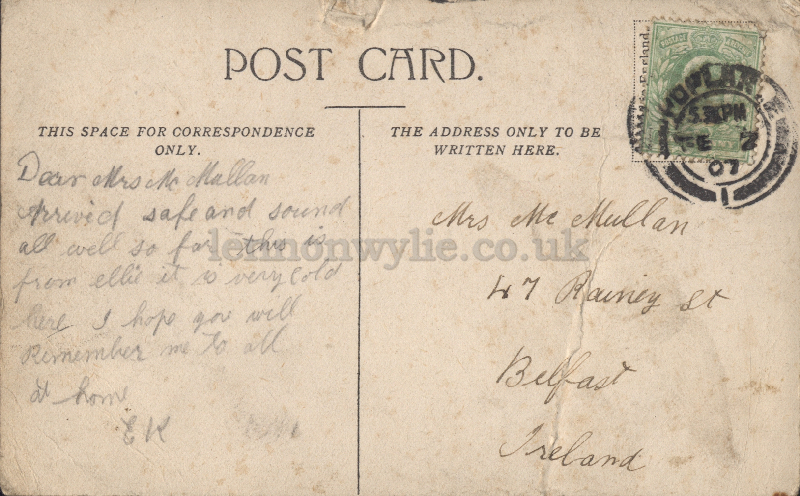 POST CARD.
THIS SPACE FOR CORRESPONDENCE
ONLY.
THE ADDRESS ONLY TO BE
WRITTEN HERE.
Dear Mrs Mc Mullan
Arrived safe and sound
all well so far this is
from ellie it is very cold
here I hope you will
Remember me to all
at home
E K
Mrs Mc Mullan
47 Rainey St
Belfast
Ireland
England
POPLAR
5.30PM
FE 2
07
1
lennonwylie.co.uk